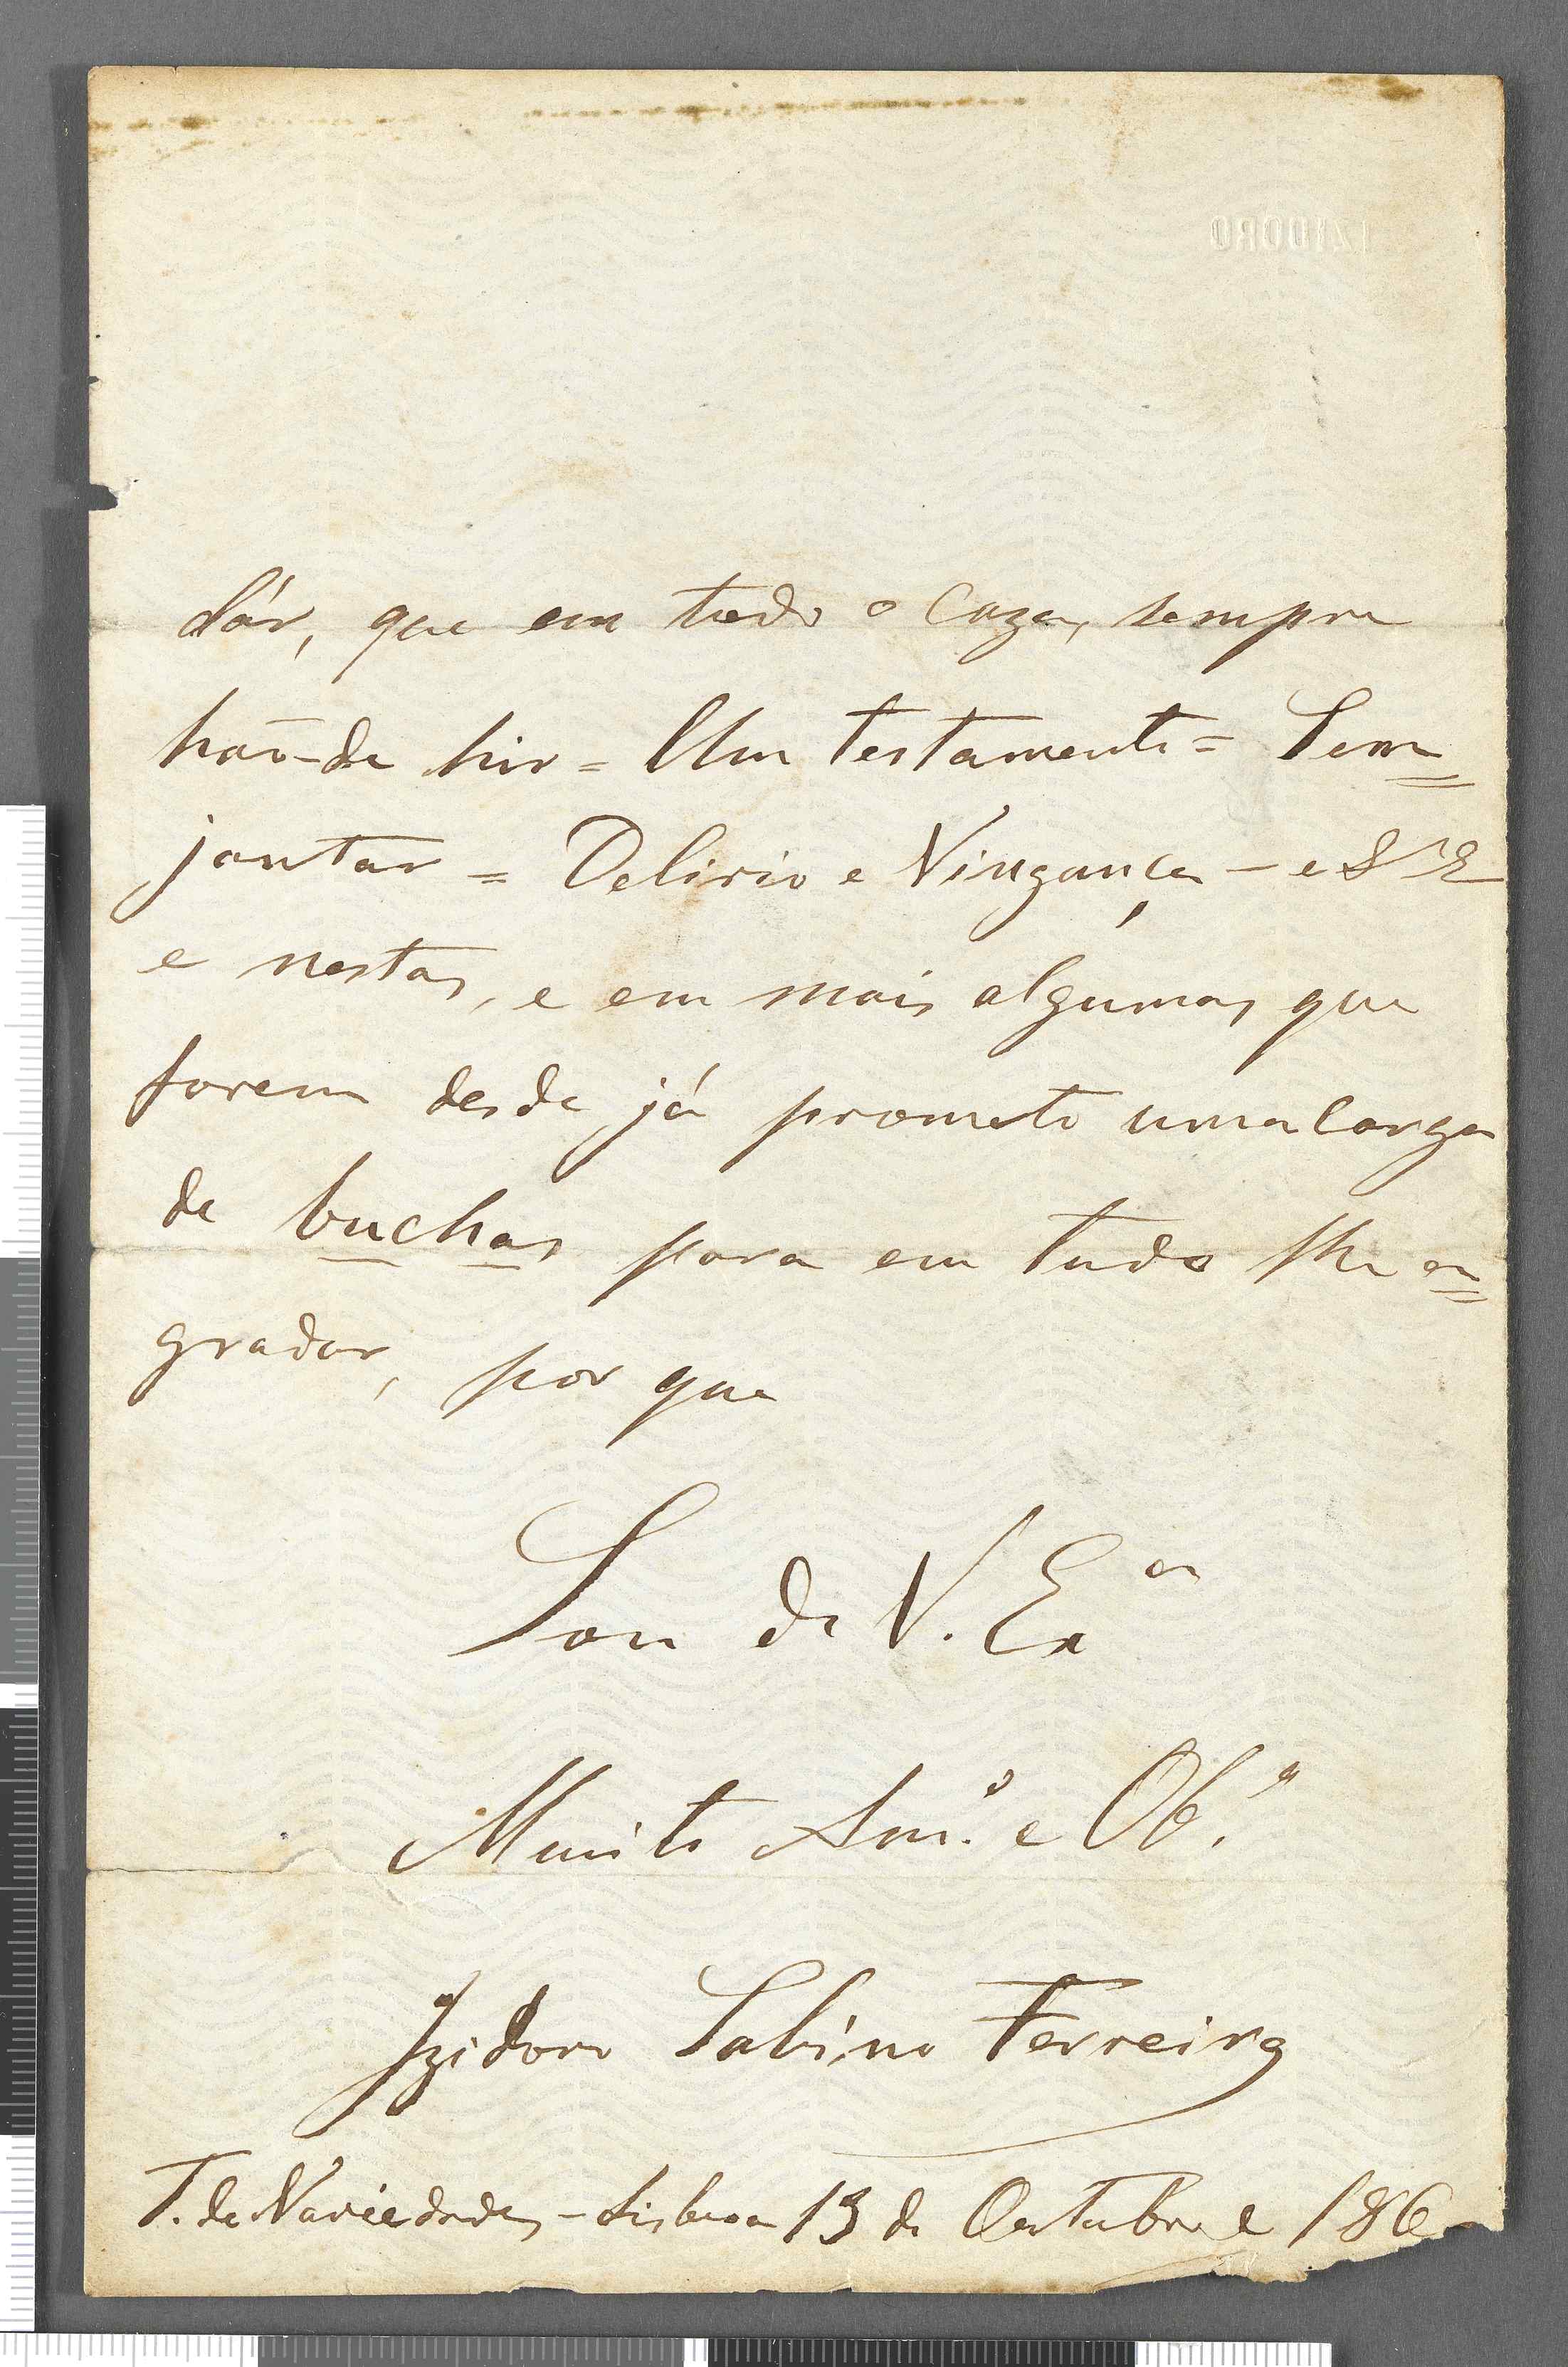 IZIDORO
dár, que em todo o caza, sempre
hão-de hir = Um testamento = Sem=
jantar = Delirio e Vingança - e
e nestas, e em mais algumas que
forem desde já prometo uma carga
de buchas para em tudo lhe a=
gradar, por que
Sou de V. Exª
Muito Am.º e Ob.º
Izidoro Sabino Ferreira
T. de Variedades - Lisboa 13 de Outubro e 186